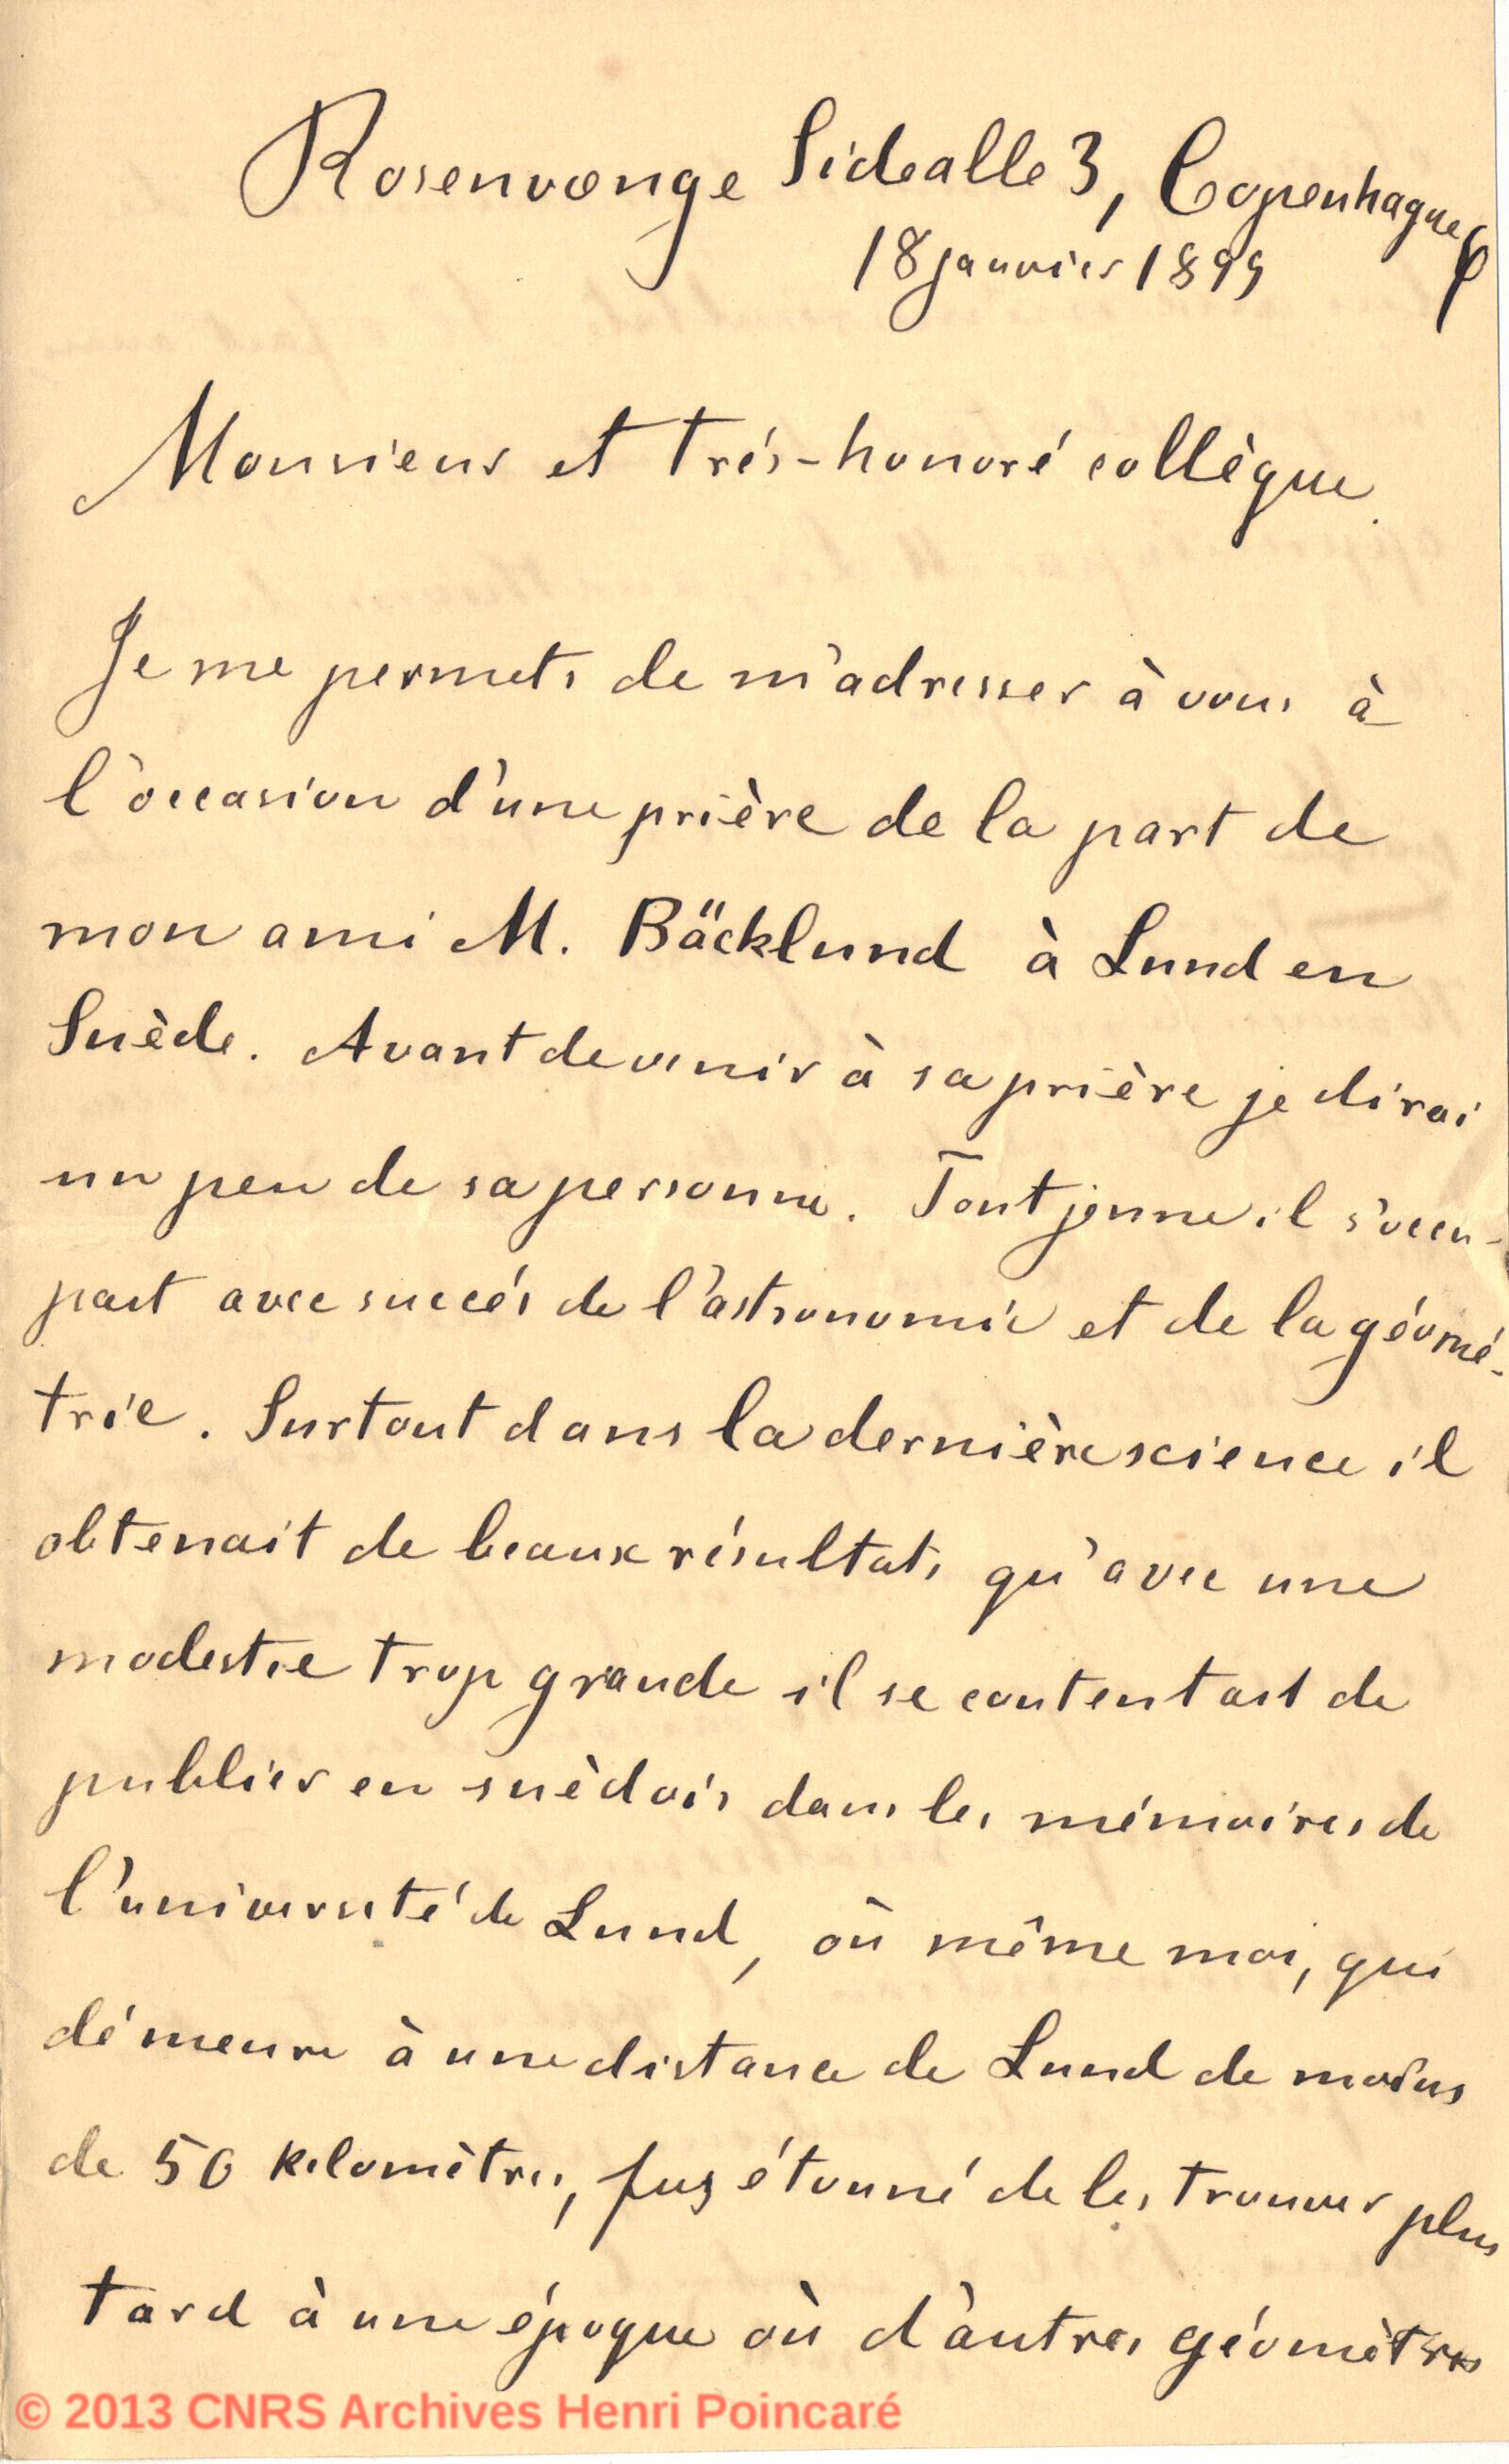 Rosenvœnge Sidealle 3, Copenhague
18 janvier 1899
Monsieur et trés-honoré collègue.
Je me permets de m'adresser à vous à
l'occasion d'une prière de la part de
mon ami M. Bäcklund à Lund en
Suède. Avant de venir à sa prière je dirai
un peu de sa personne. Tout jeune il s'occu-
pait avec succés de l'astronomie et de la géomé-
trie. Surtout dans la dernière science il
obtenait de beaux résultats qu'avec une
modestie trop grande il se contentait de
publier en suèdois dans les mémoires de
l'université de Lund, où même moi, qui
démeure à une distance de Lund de moins
de 50 kilomètres, fus étonné de les trouver plus
tard à une époque où d'autres géomètres
© 2013 CNRS Archives Henri Poincaré